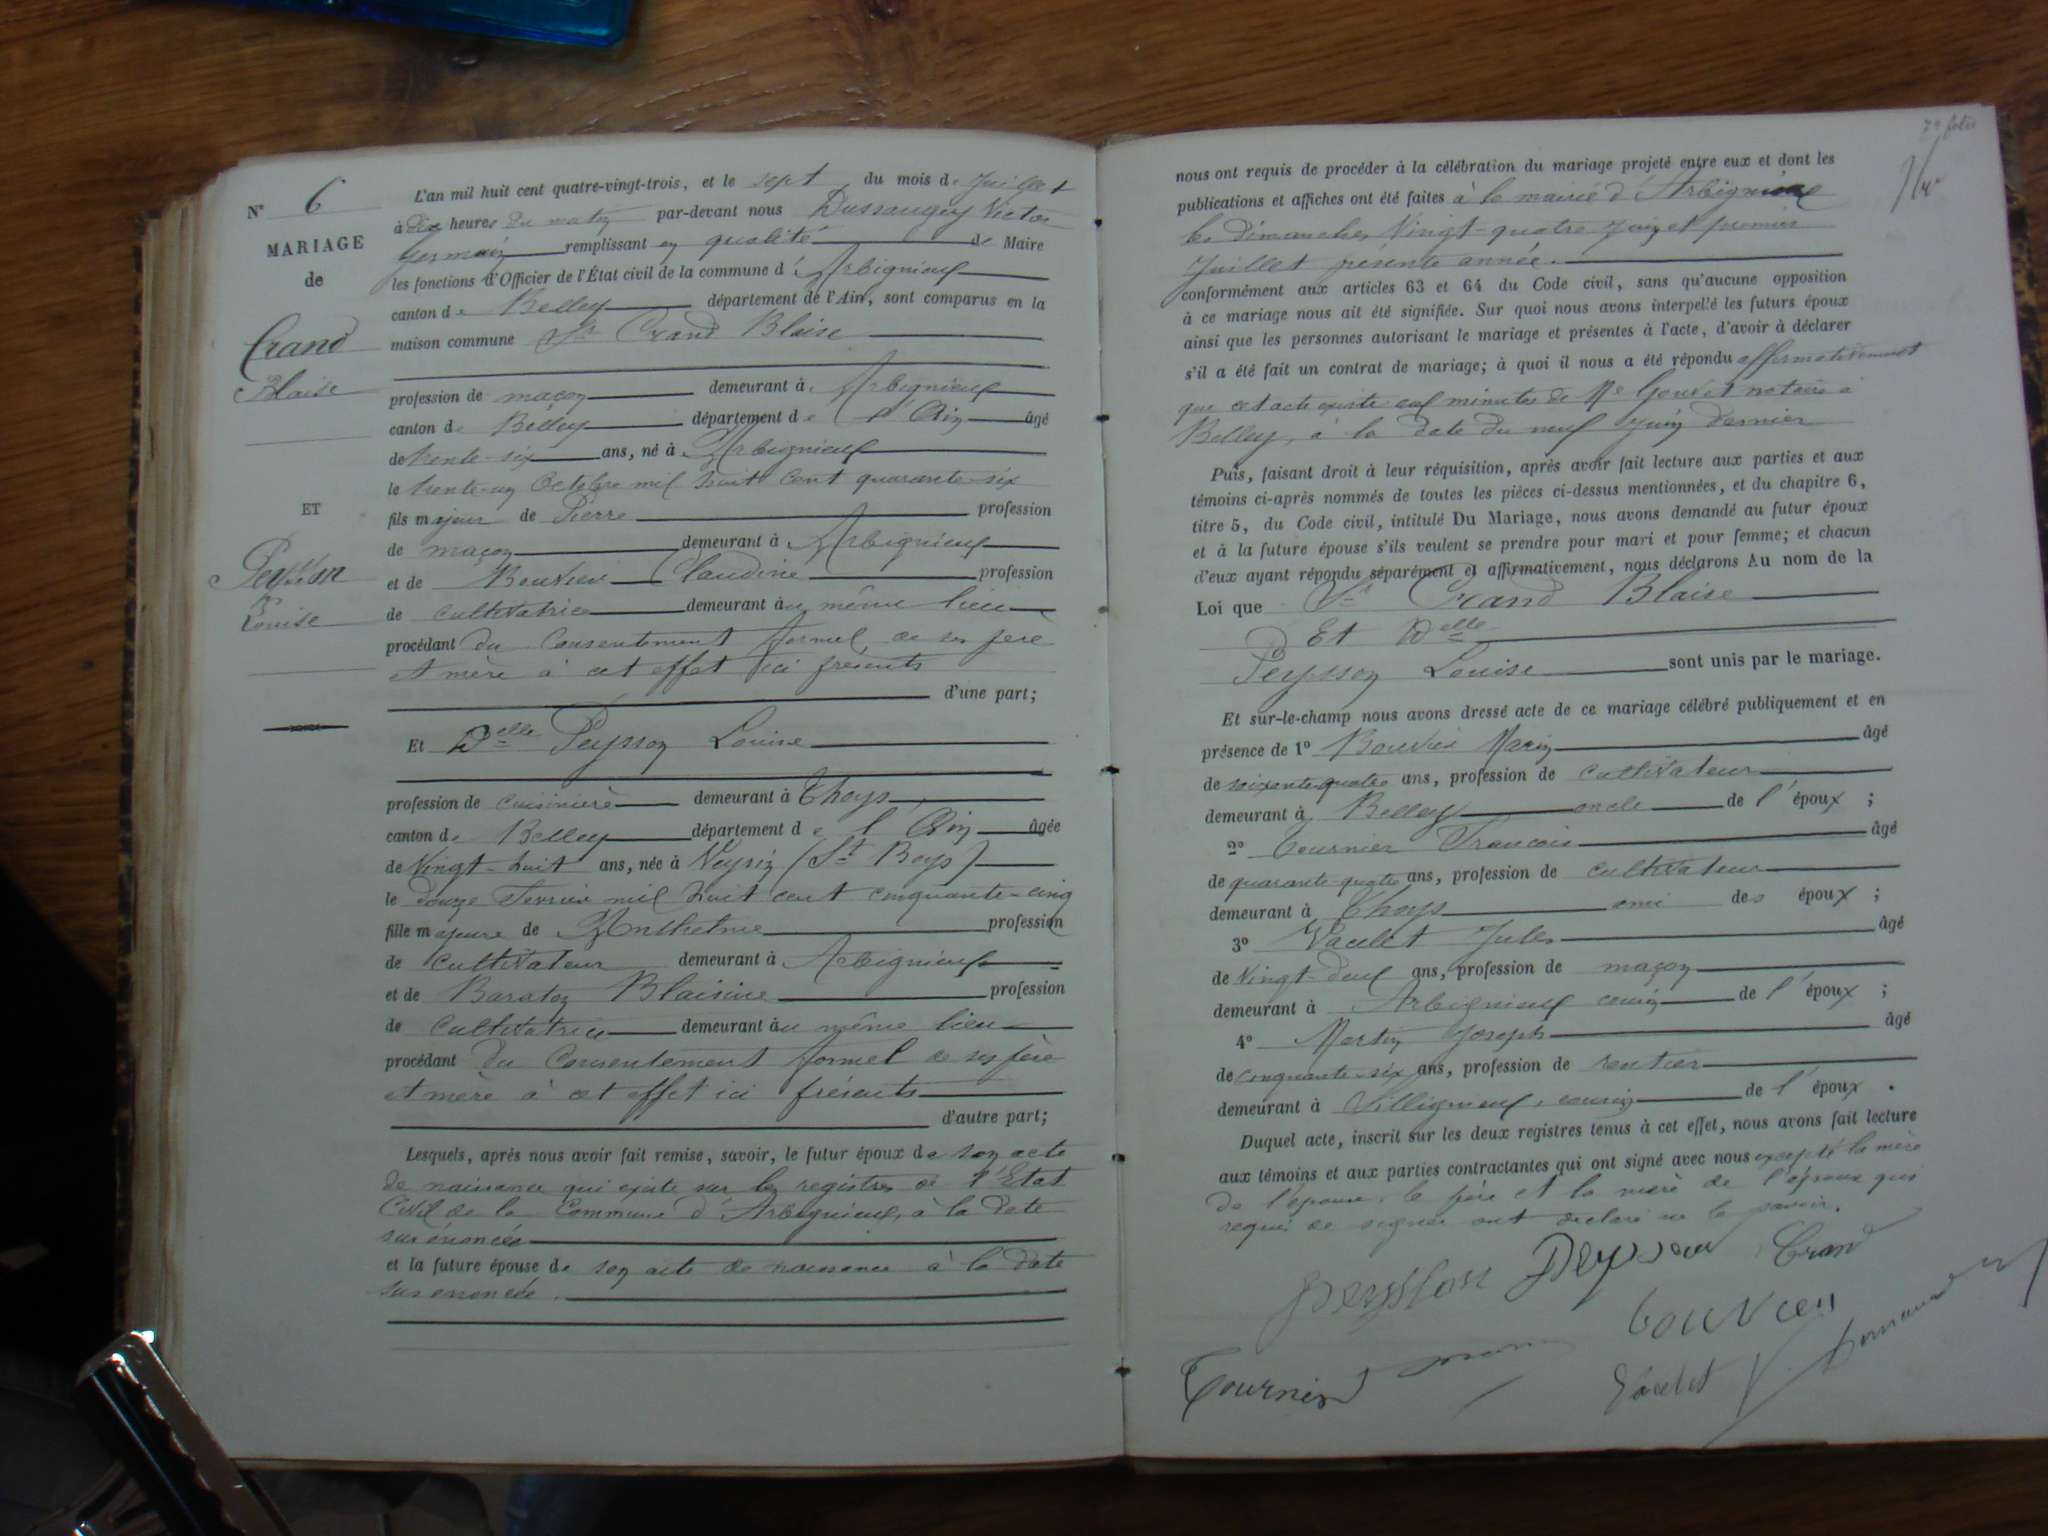 N° 6
MARIAGE
de
Crand
Blaise
ET
Peysson
Louise
L'an mil huit cent quatre-vingt-trois, et le sept du mois de Juillet
à dix heures du matin par-devant nous Dussaugey Victor
Germain remplissant en qualité de Maire
les fonctions d'Officier de l'État civil de la commune d'Arbignieux
canton de Belley département de l'Ain, sont comparus en la
maison commune Sr Crand Blaise
profession de maçon demeurant à Arbignieux
canton de Belley département de l'Ain âgé
de trente-six ans, né à Arbignieux
le trente-un Octobre mil huit cent quarante-six
fils majeur de Pierre profession
de maçon demeurant à Arbignieux
et de Bouvier Claudine profession
de cultivatrice demeurant au même lieu
procédant du consentement formel de ses père
et mère à cet effet ici présents
d'une part;
Et Delle Peysson Louise
profession de cuisinière demeurant à Thoys
canton de Belley département de l'Ain âgée
de Vingt-huit ans, née à Veyrin (St Boys)
le douze Février mil huit cent cinquante-cinq
fille majeure de Anthelme profession
de cultivateur demeurant à Arbignieux
et de Baraton Blaisine profession
de cultivatrice demeurant au même lieu
procédant du consentement formel de ses père
et mère à cet effet ici présents
d'autre part;
Lesquels, après nous avoir fait remise, savoir, le futur époux de son acte
de naissance qui existe sur les registres de l'Etat
Civil de la Commune d'Arbignieux, à la date
sus énoncée
et la future épouse de son acte de naissance à la date
sus énoncée.
nous ont requis de procéder à la célébration du mariage projeté entre eux et dont les
publications et affiches ont été faites à la mairie d'Arbignieux
les Dimanches Vingt-quatre Juin et premier
Juillet présente année.
conformément aux articles 63 et 64 du Code civil, sans qu'aucune opposition
à ce mariage nous ait été signifiée. Sur quoi nous avons interpellé les futurs époux
ainsi que les personnes autorisant le mariage et présentes à l'acte, d'avoir à déclarer
s'il a été fait un contrat de mariage; à quoi il nous a été répondu affirmativement
que cet acte existe aux minutes de Me notaire à
Belley, à la date du neuf Juin dernier
Puis, faisant droit à leur réquisition, après avoir fait lecture aux parties et aux
témoins ci-après nommés de toutes les pièces ci-dessus mentionnées, et du chapitre 6,
titre 5, du Code civil, intitulé Du Mariage, nous avons demandé au futur époux
et à la future épouse s'ils veulent se prendre pour mari et pour femme; et chacun
d'eux ayant répondu séparément et affirmativement, nous déclarons Au nom de la
Loi que Sr Crand Blaise
Et Delle
Peysson Louise sont unis par le mariage.
Et sur-le-champ nous avons dressé acte de ce mariage célébré publiquement et en
présence de 1° Bouvier Marin âgé
de soixante quatre ans, profession de cultivateur
demeurant à Belley oncle de l'époux ;
2° Tournier François âgé
de quarante-quatre ans, profession de cultivateur
demeurant à Thoys ami des époux ;
3° Vaulet Jules âgé
de Vingt-deux ans, profession de maçon
demeurant à Arbignieux cousin de l'époux ;
4° Martin Joseph âgé
de cinquante-six ans, profession de rentier
demeurant à Silligneux, cousin de l'époux.
Duquel acte, inscrit sur les deux registres tenus à cet effet, nous avons fait lecture
aux témoins et aux parties contractantes qui ont signé avec nous excepté la mère
de l'épouse, le père et la mère de l'époux qui
requis de signer ont déclaré ne le savoir.
Peysson Peysson Crand
bouvier
Tournier